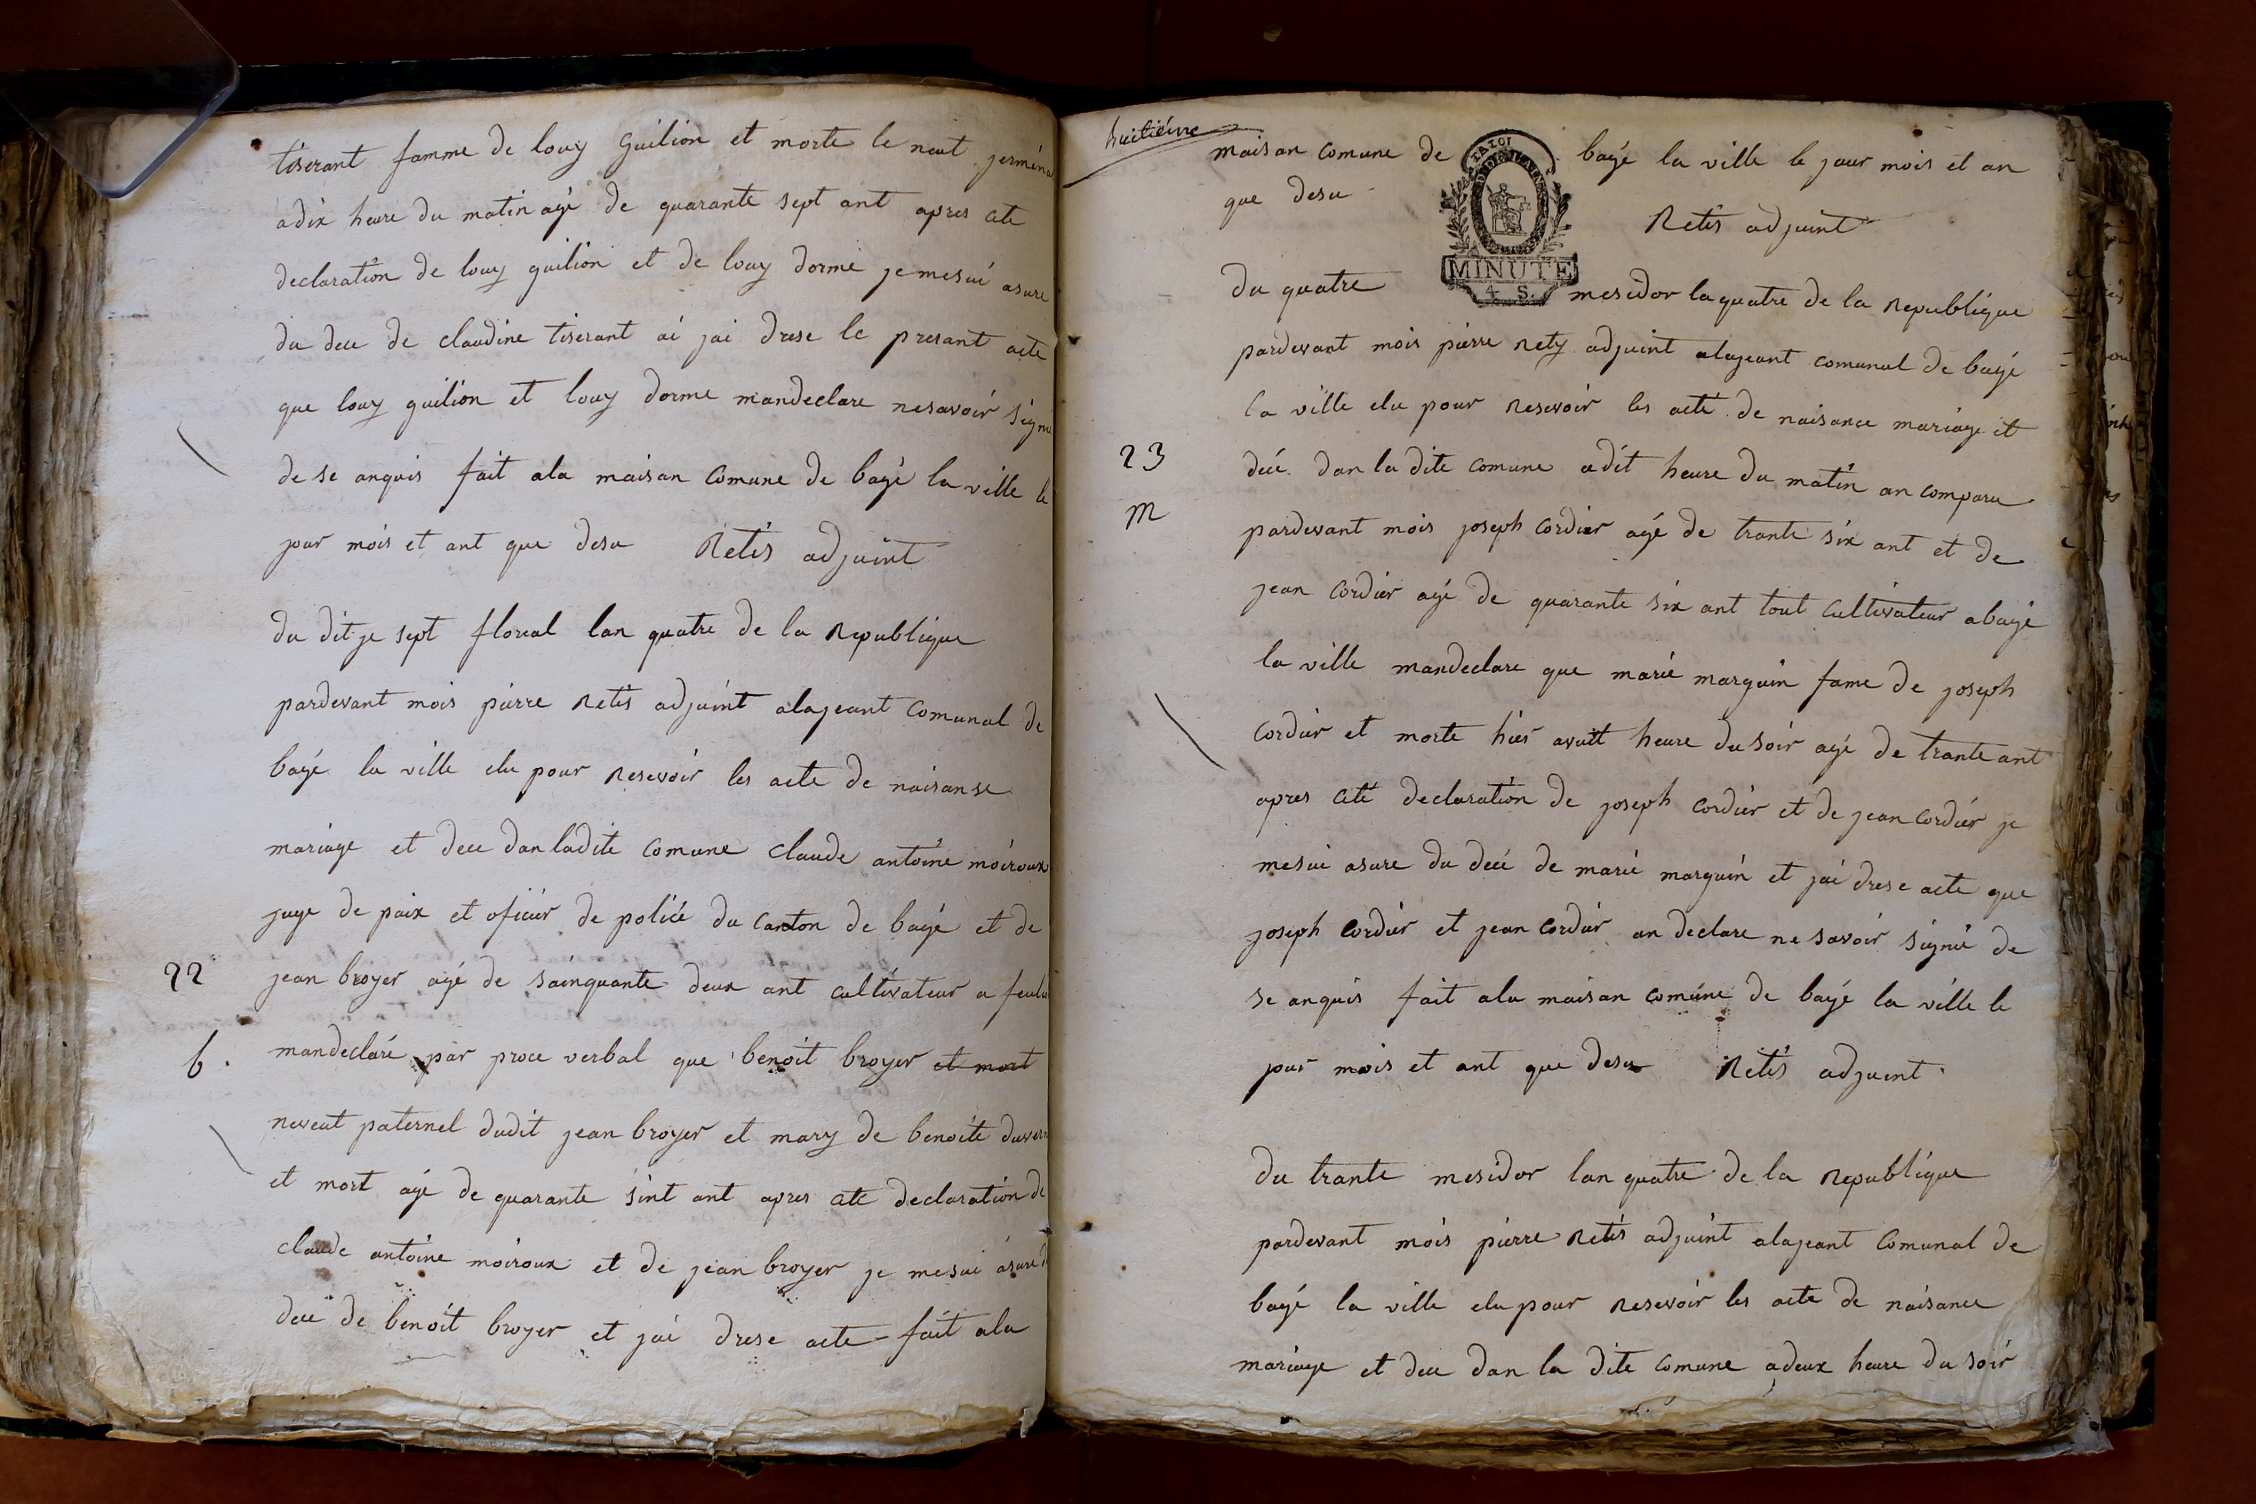 tiserant famme de louy guilion et morte le neut jermina
adix heure du matin agé de quarante sept ant apres cete
declaration de louy guilion et de louy dorme je mesui asure
du dece de claudine tiserant ai jai drese le presant acte
que louy guilion et louy dorme mandeclare nesavoir signe
de se anquis fait ala maison comune de bagé la ville le
jour mois et ant que desu Retis adjuint
du dit je sept floreal lan quatre de la Republique
pardevant mois pierre Retis adjuint alajeant comunal de
bagé la ville elu pour Resevoir les acte de naisanse
mariage et dece dan ladite comune claude antoine moiroux
juge de paix et oficier de police du canton de bagé et de
22
jean broyer agé de sainquante deux ant cultivateur a
b.
mandeclaré par proce verbal que benoit broyer et mort
neveut paternel dudit jean broyer et mary de benoite
et mort agé de quarante sint ant apres cete declaration de
claude antoine moiroux et de jean broyer je mesui asuré
dece de benoit broyer et jai drese acte fait ala
huitiéme
maison comune de bagé la ville le jour mois et an
que desu
Retis adjuint
MINUTE
4 S.
du quatre mesidor laquatre de la Republique
pardevant mois pierre Rety adjuint alajeant comunal de bagé
la ville elu pour Resevoir les acte de naisance mariage et
23
decé dan la dite comune a dit heure du matin an comparu
m
pardevant mois joseph cordier agé de trante six ant et de
jean cordier agé de quarante six ant tout cultivateur a bagé
la ville mandeclare que marie marguin fame de joseph
cordier et morte hier avuit heure du soir agé de trante ant
apres cete declaration de joseph cordier et de jean cordier je
mesui asure du decé de marie marguin et jai drese acte que
joseph cordier et jean cordier an declare ne savoir signié de
se anquis fait ala maison comune de bagé la ville le
jour mois et ant que desu Retis adjuint
du trante mesidor lan quatre de la Republique
pardevant mois pierre Retis adjuint alajeant comunal de
bagé la ville elu pour Resevoir les acte de naisance
mariage et dece dan la dite comune a deux heure du soir